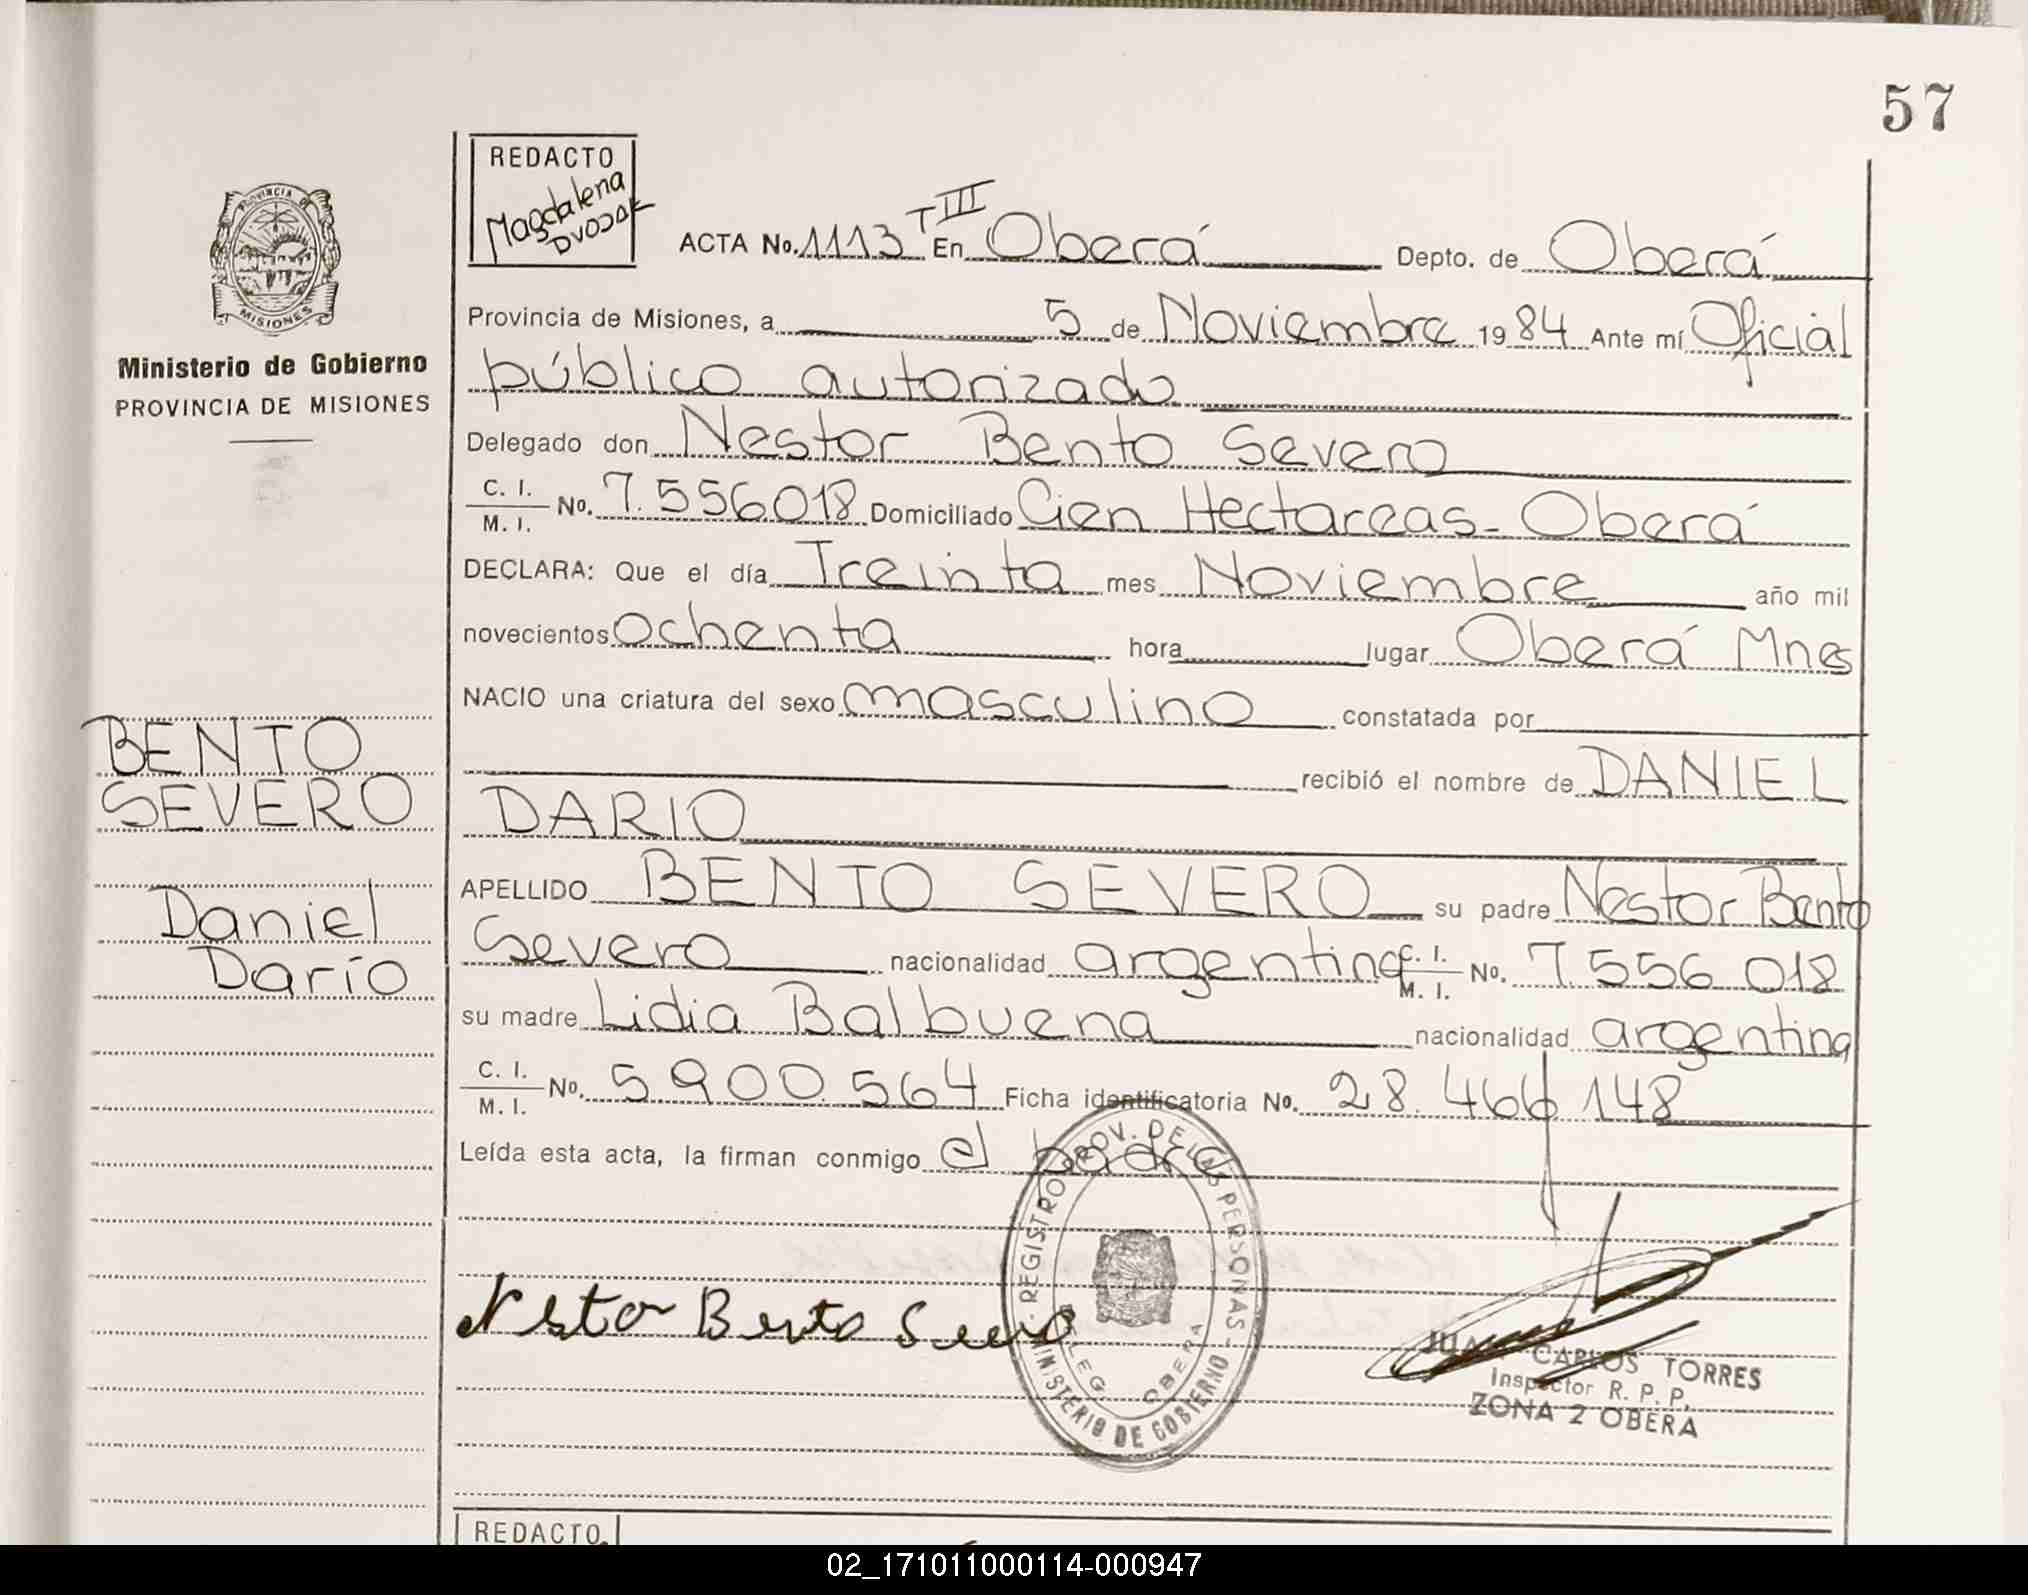 57
REDACTO
Magdalena
DVOJAK
PROVINCIA DE
MISIONES
Ministerio de Gobierno
PROVINCIA DE MISIONES
ACTA No. 1113 T III En Oberá Depto. de Oberá
Provincia de Misiones, a 5 de Noviembre 1984 Ante mí Oficial
público autorizado
Delegado don Nestor Bento Severo
C. I. / M. I. No. 7.556018 Domiciliado Cien Hectareas - Oberá
DECLARA: Que el día Treinta mes Noviembre año mil
novecientos ochenta hora lugar Oberá Mnes
NACIO una criatura del sexo masculino constatada por
recibió el nombre de DANIEL
DARIO
APELLIDO BENTO SEVERO su padre Nestor Bento
Severo nacionalidad argentina C. I. / M. I. No. 7.556.018
su madre Lidia Balbuena nacionalidad argentina
C. I. / M. I. No. 5.900.564 Ficha identificatoria No. 28.466.148
Leída esta acta, la firman conmigo el padre
BENTO
SEVERO
Daniel
Darío
Nestor Bento Severo
REGISTRO PROV. DE LAS PERSONAS -
MINISTERIO DE GOBIERNO
DELEG. OBERA
JUAN CARLOS TORRES
Inspector R. P. P.
ZONA 2 OBERA
REDACTO
02_171011000114-000947